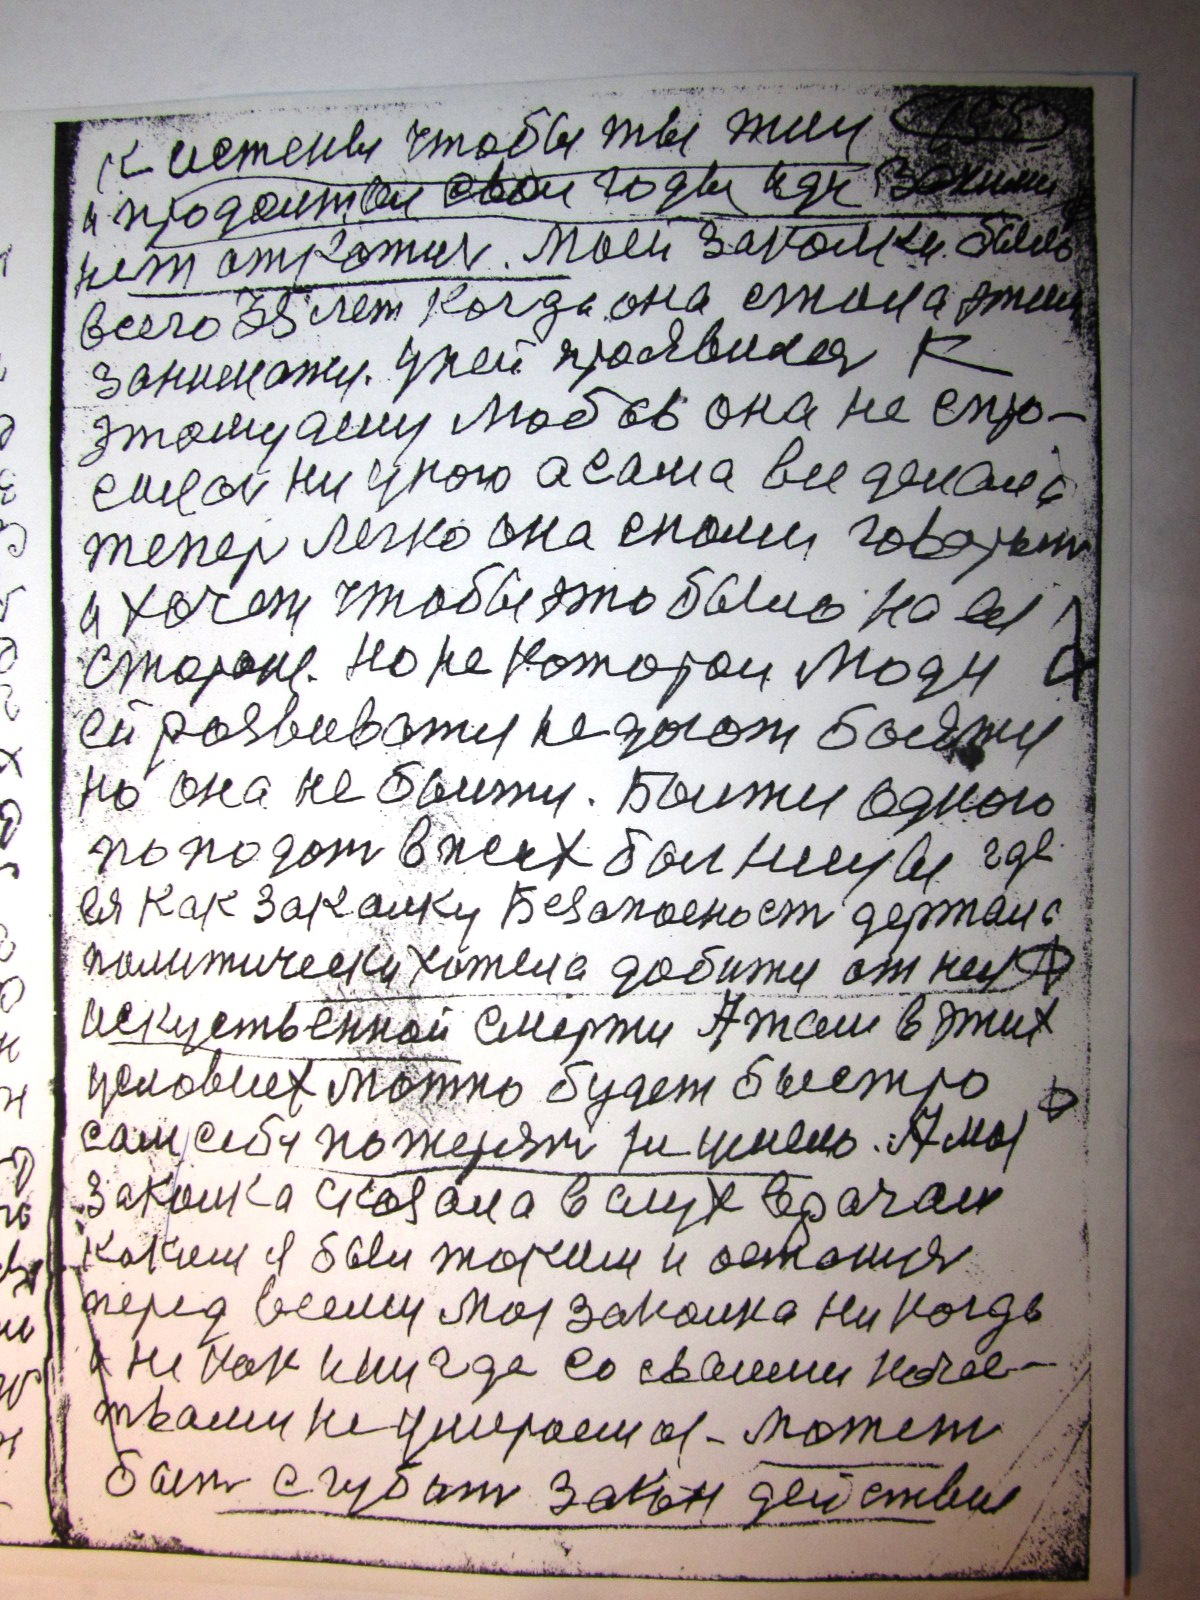 195
к истены чтобы ты жил
и продолжал свои годы иди Заними
нет откажися. Моей закалки было
всего 35 лет когда она стала этим
заниматы. У ней проявился К
этому делу любов она не спро-
силас ни у кого а сама все делала
тепер легко она с нами говорыт
и хочет чтобы это было на ея
стороне. но не которои люди
ей розвиваты не дают болѣты
но она не болиты. Болиты одного
попадат в псих болницы где
ея как закалку Безапосност держала
политически хотела добиты от нея
искуственной смерти А там в тих
условиях можно будет быстро
сам себя потерят ни цинело. А моя
закалка сказала в слух врачам
каким я был таким и остался
перед всеми моя закалка ни когда
и ни как и ни где со своими каче-
твами не умирает я - может
быт сгубит закон действия